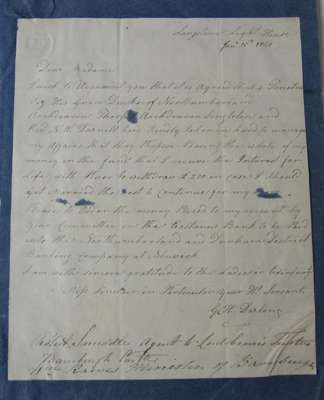 Longstone Light House
Jan 15th
Dear Madam
I want to you that it is Agreed that 4 Trustees
Viz His Grace Duke of Northumberland
Archdeacon Thorp Archdeacon Singleton and
Revd Darnell have kindly taken in hand to manage
my Affairs that they propose the whole of my
money in the fund that I receive the Interest for
life with Power to withdraw £200 in case I should
get married the rest to continue for my
Please to order the money Placed to my account by
your Committee in the Bank to be Paid
into the Northumberland and Durham District
Banking Company at Alnwick
I am with sincere gratitude to the Ladies of
Miss in Particular your Servant
G H Darling
Robt Smeddle Agent to Lord Crewe's Trustees
Bamburgh Castle
of Bamburgh